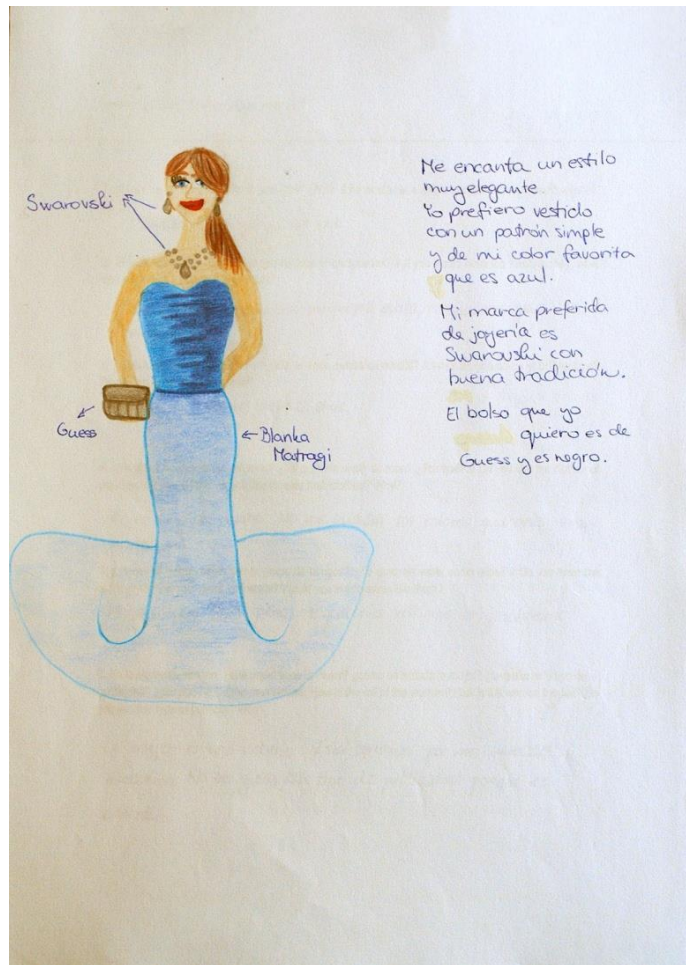 Swarovski
Guess
Blanka
Matragi
Me encanta un estilo
muy elegante
Yo prefiero vestido
con un patrón simple
y de mi color favorita
que es azul.
Mi marca preferida
de joyería es
Swarovski con
buena tradición.
El bolso que yo
quiero es de
Guess y es negro.